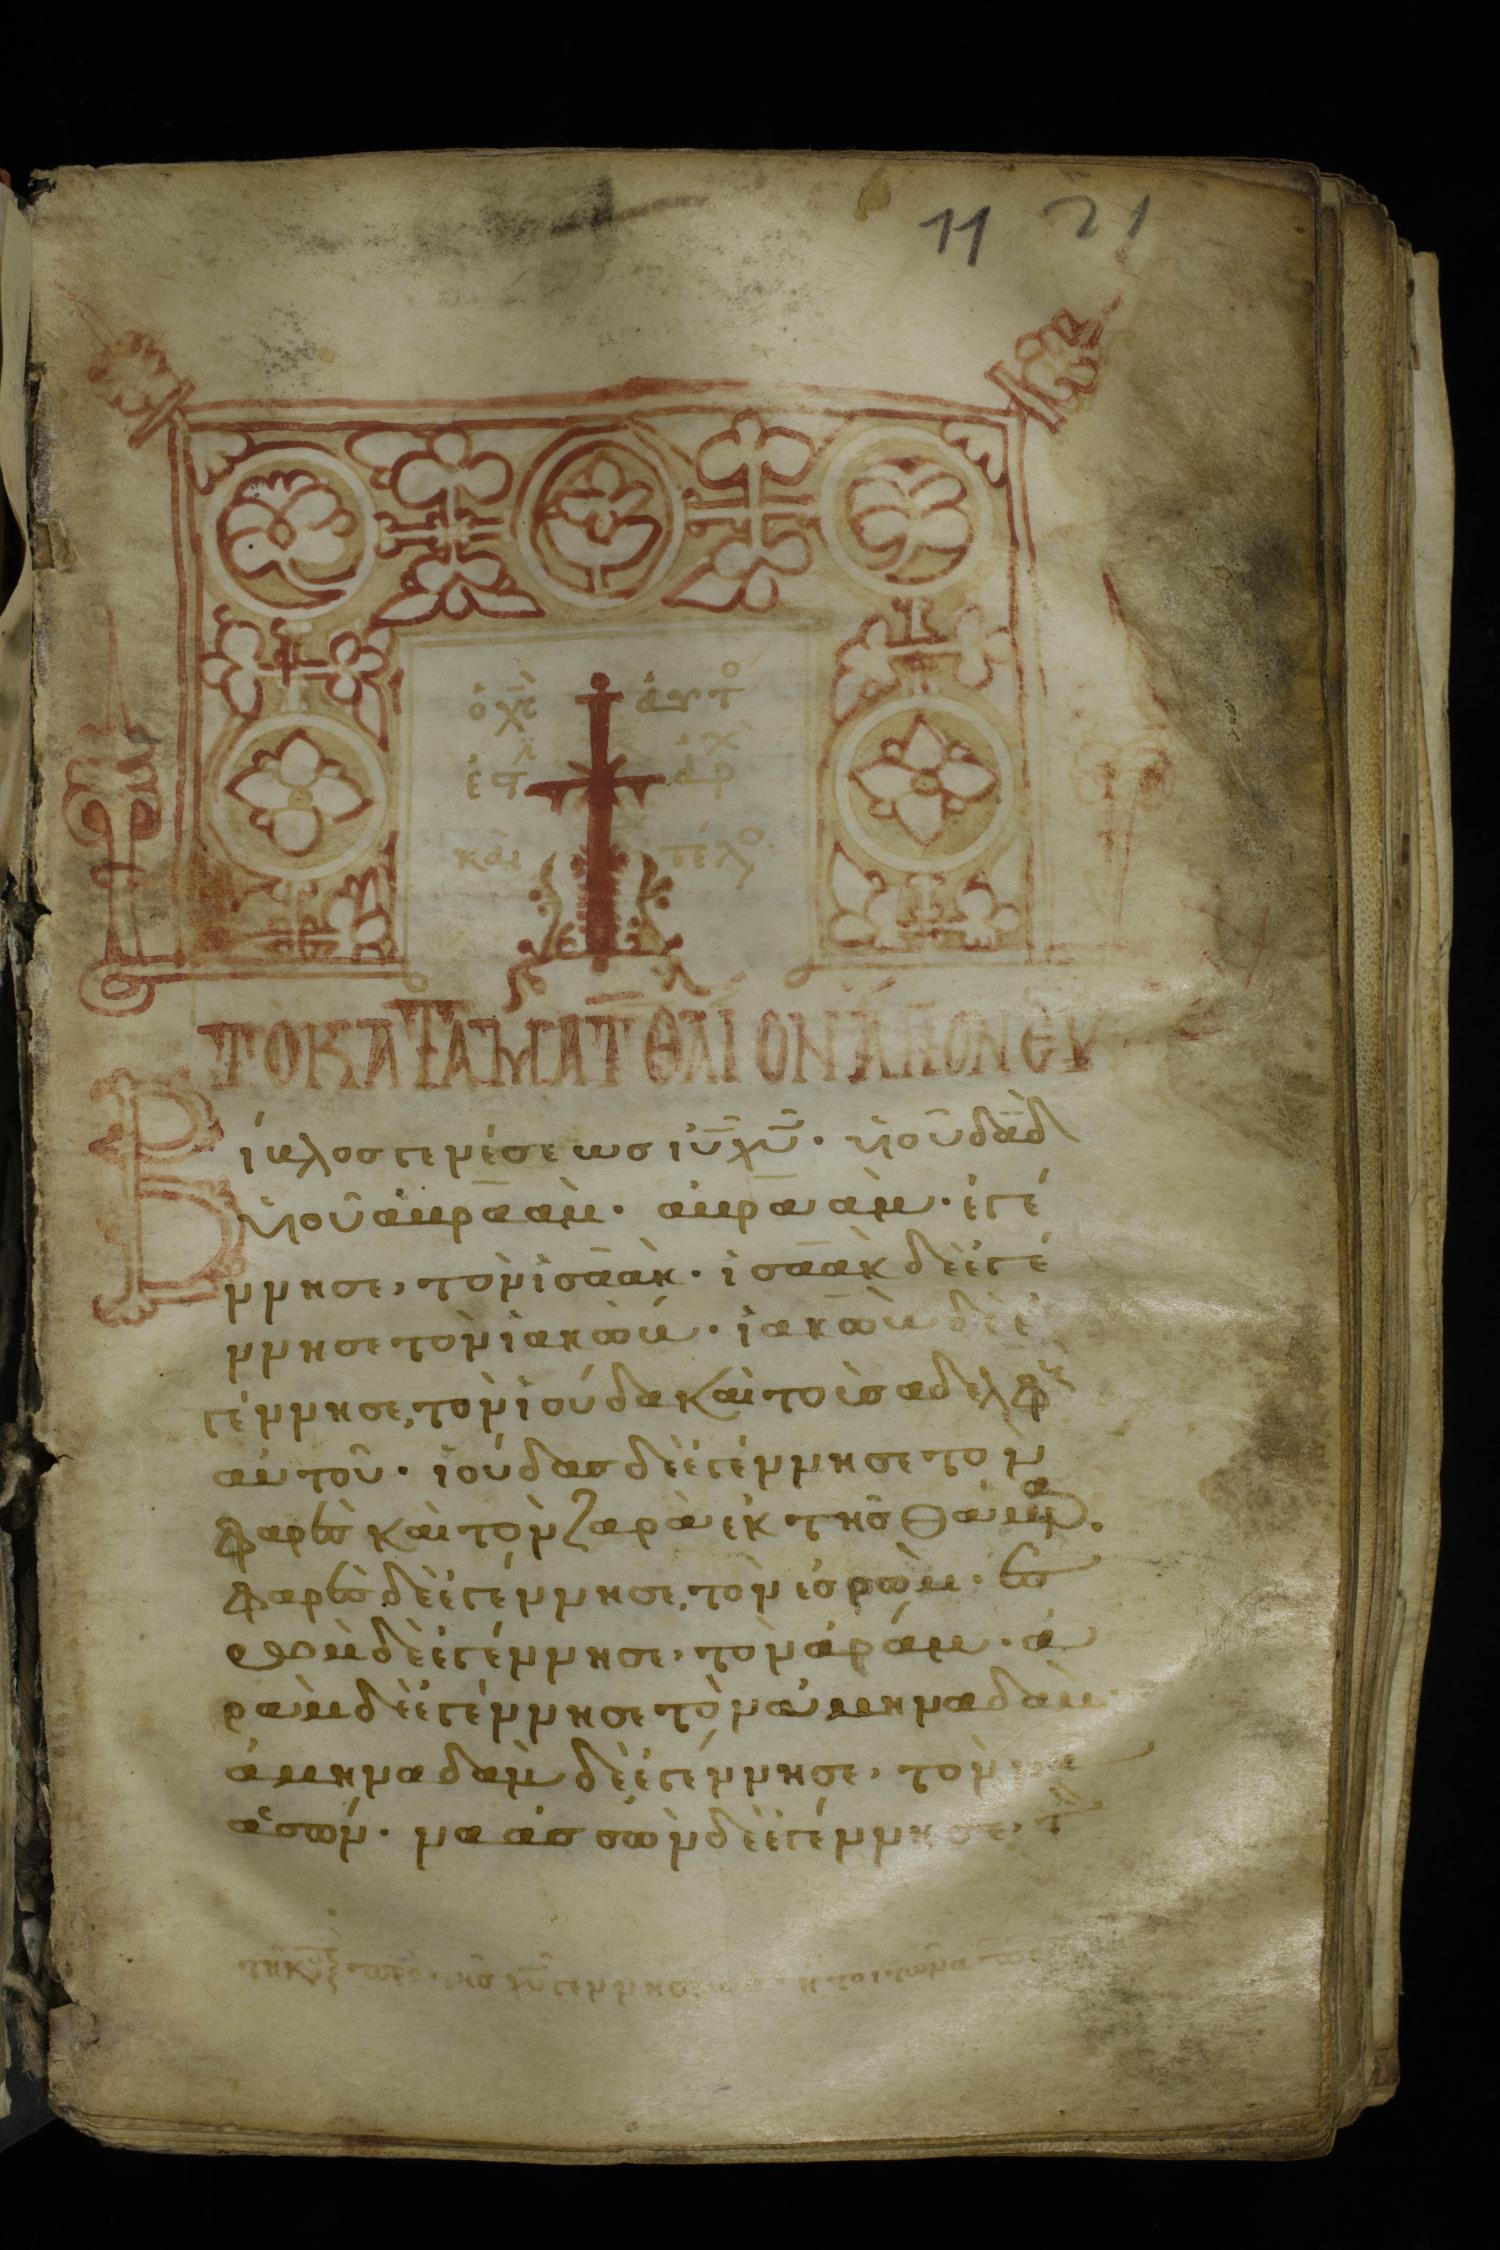 11 21
ὁ χ̅ς̅ αὐτὸ
ἐστ ἀρχ
καὶ τέλο
ΤΟ ΚΑΤΑ ΜΑΤΘΑΙΟΝ ΑΓΙΟΝ ΕΥ
Βίβλος γενέσεως ἰ̅υ̅ χ̅υ̅· υἱοῦ δα̅δ̅
υἱοῦ ἀβραάμ· ἀβραὰμ· ἐγέ
ννησε, τὸν ἰσαὰκ· ἰσαὰκ δὲ ἐγέ
ννησε τὸν ἰακώβ· ἰακὼβ δὲ ἐ
γέννησε, τὸν ἰούδα καὶ τοὺς ἀδελφ
αὐτοῦ· ἰούδας δὲ ἐγέννησε τὸν
φαρὲς καὶ τὸν ζαρὰ ἐκ τῆς θάμαρ·
φαρὲς δὲ ἐγέννησε, τὸν ἐσρώμ· ἐσ
ρὼμ δὲ ἐγέννησε, τὸν ἀράμ· ἀ
ρὰμ δὲ ἐγέννησε τὸν ἀμηναδὰμ·
ἀμηναδὰμ δὲ ἐγέννησε, τὸν να
ασών· ναασσὼν δὲ ἐγέννησε, τ
τῆ κυ πρὸ τῆς χ̅υ̅ γεννήσεως